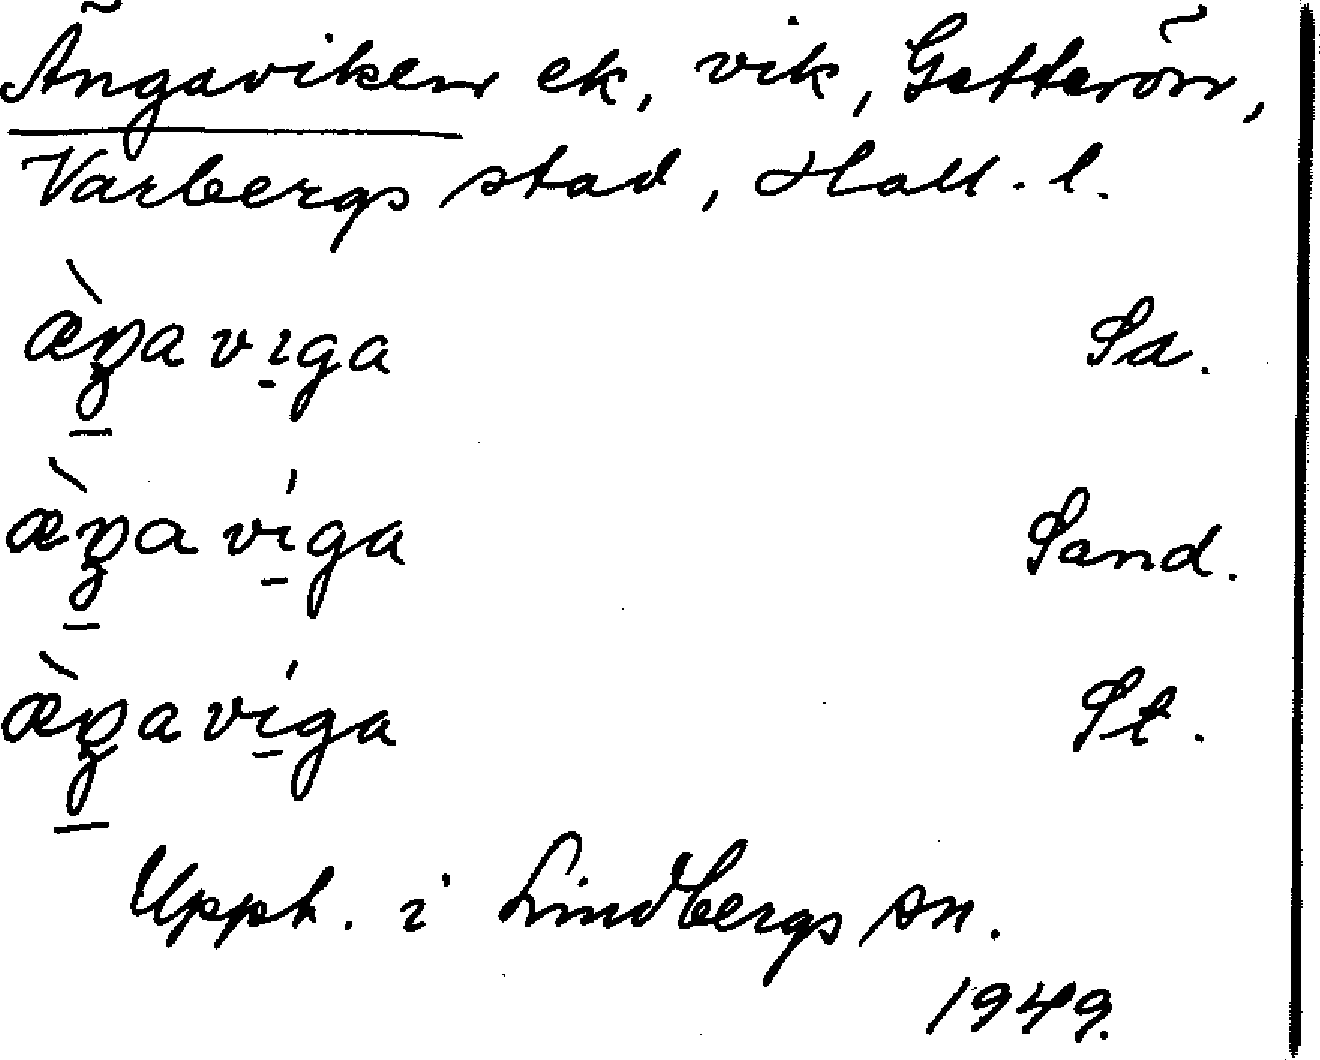 Ängaviken ek, vik, Getterön,
Varbergs stad, Hall. l.
æ̀ŋaviga Sa.
æ̀ŋavíga Sand.
æ̀ŋavíga St.
Uppt. i Lindbergs sn.
1949.